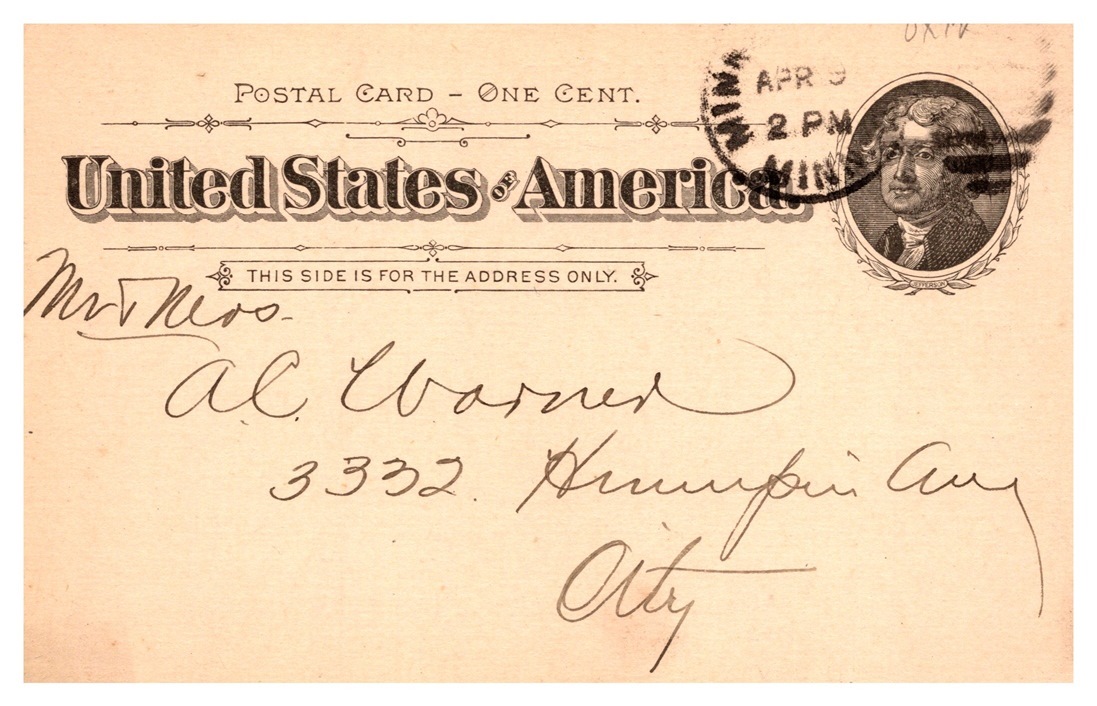 POSTAL CARD – ONE CENT.
United States OF America.
THIS SIDE IS FOR THE ADDRESS ONLY.
JEFFERSON
APR 9
2 PM
MINN
Mr & Mrs.
A.C. Warner
3332. Hennepin Ave
City